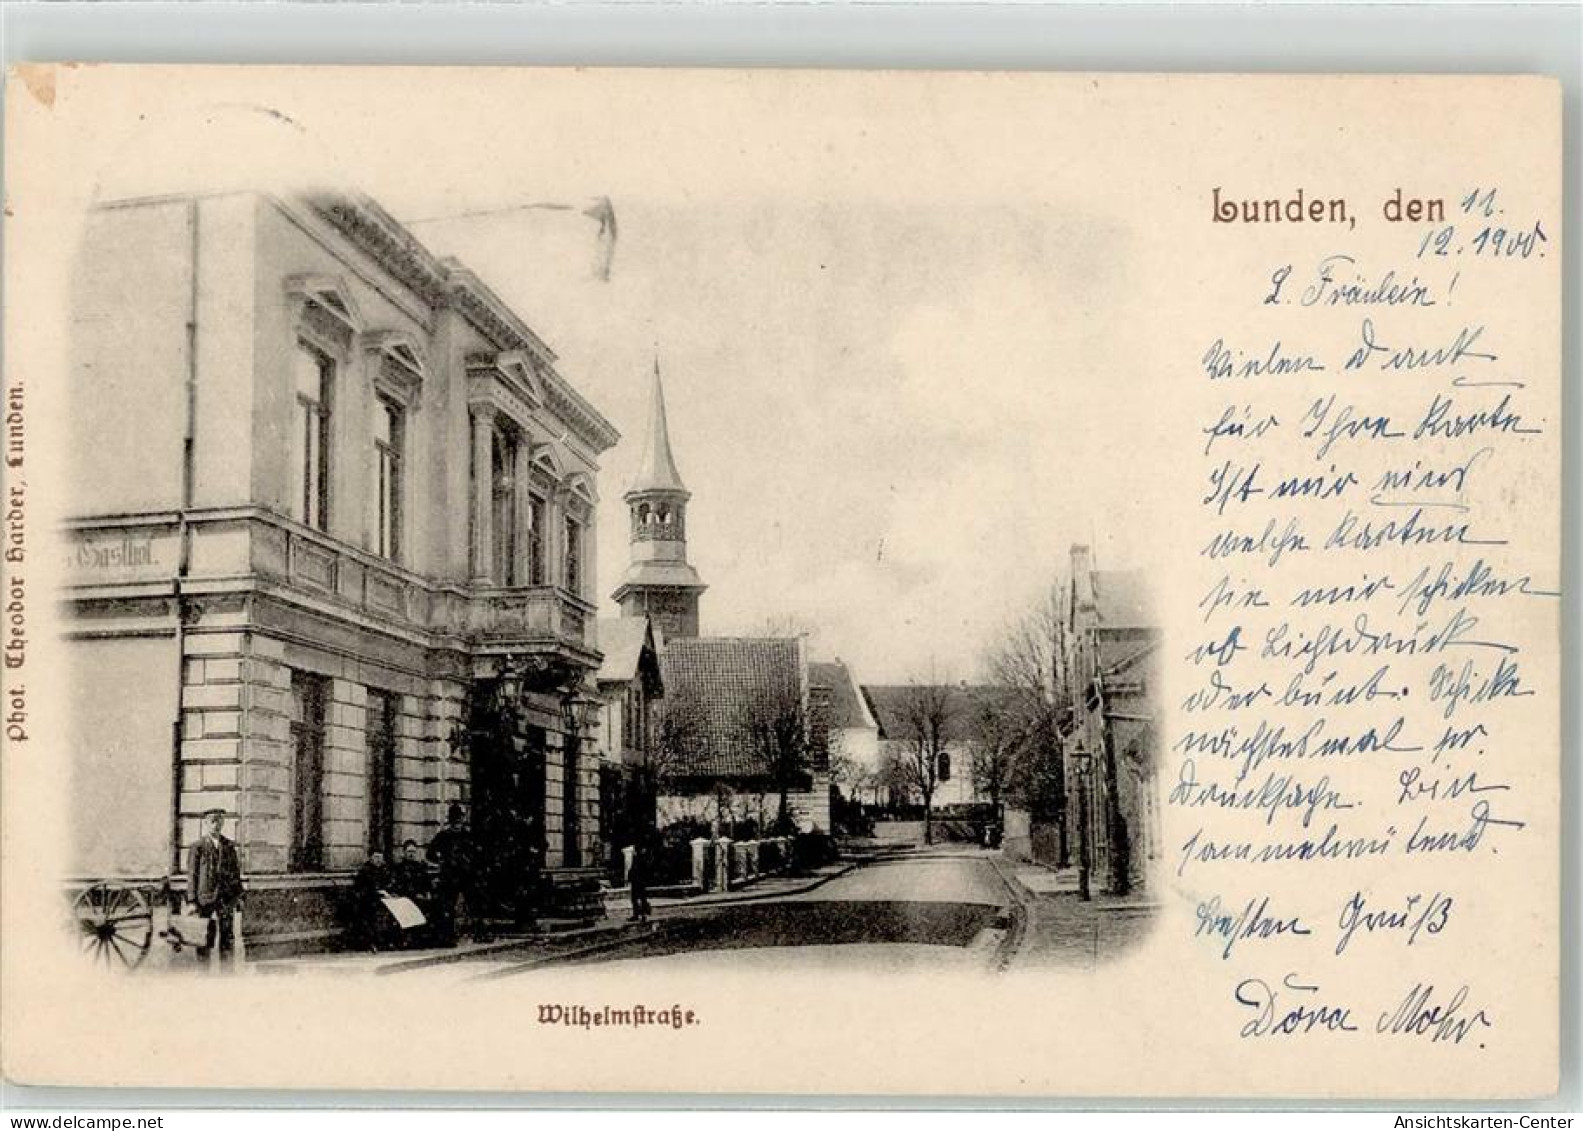 Lunden, den 11.
12. 1900.
L. Fräulein!
Vielen Dank
für Ihre Karte.
Ist mir eins
welche Karten
sie mir schicken
ob Lichtdruck
oder bunt. Schicke
nächstesmal pr.
Drucksache. Bin
sammelwütend.
Besten Gruß
Dora Mohr.
Gasthof.
Phot. Theodor Harder, Lunden.
Wilhelmstraße.
Ansichtskarten-Center